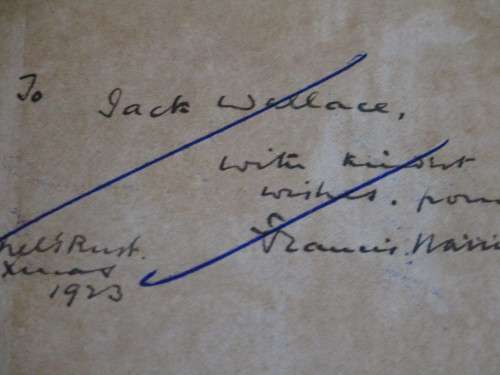 To Jack Wallace,
with kindest
wishes. from
Francis
Xmas
1923